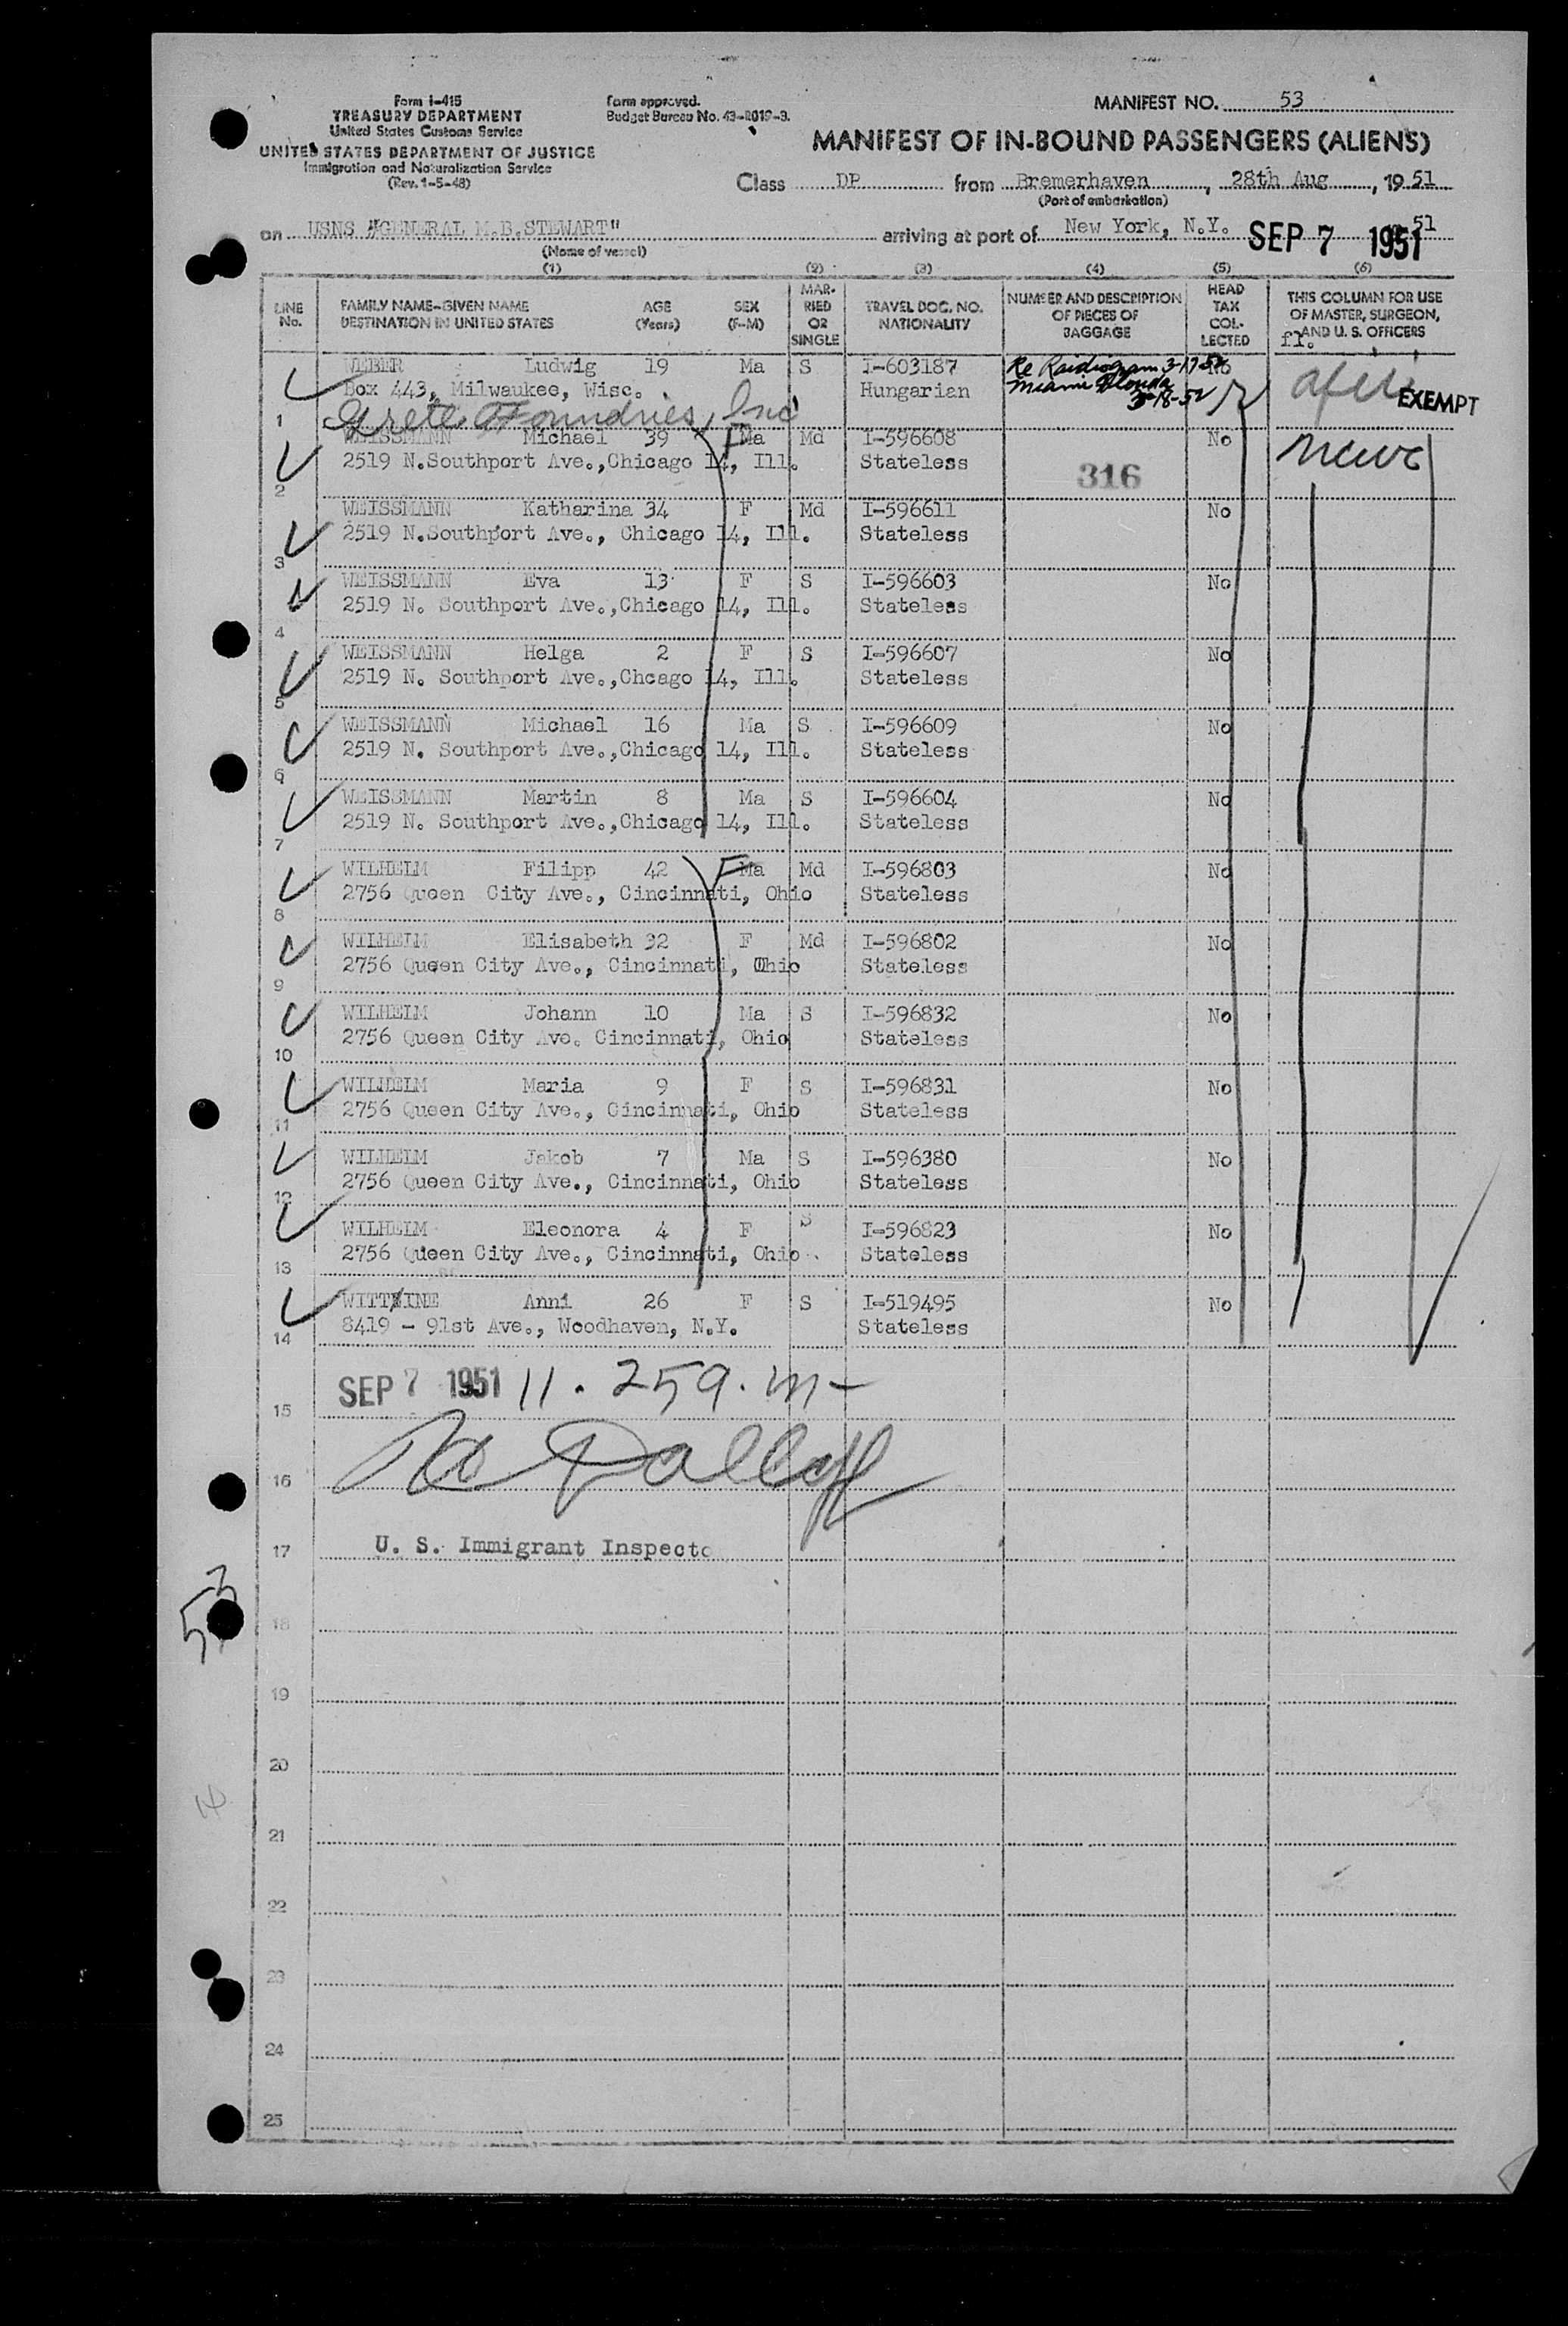 Form I-415
TREASURY DEPARTMENT
United States Customs Service
UNITED STATES DEPARTMENT OF JUSTICE
Immigration and Naturalization Service
(Rev. 1-5-48)
Form approved.
Budget Bureau No. 43-R019-3.
MANIFEST NO. 53
MANIFEST OF IN-BOUND PASSENGERS (ALIENS)
Class DP from Bremerhaven, 28th Aug, 1951
(Port of embarkation)
on USNS "GENERAL M.B.STEWART" arriving at port of New York, N.Y. SEP 7 1951 51
(Name of vessel)
(1) (2) (3) (4) (5) (6)
LINE No. FAMILY NAME-GIVEN NAME DESTINATION IN UNITED STATES AGE (Years) SEX (F-M) MARRIED OR SINGLE TRAVEL DOC. NO. NATIONALITY NUMBER AND DESCRIPTION OF PIECES OF BAGGAGE HEAD TAX COLLECTED THIS COLUMN FOR USE OF MASTER, SURGEON, AND U. S. OFFICERS
fl.
WEBER Ludwig 19 Ma S I-603187 Re Raidiogram 3-17-52 No
Box 443, Milwaukee, Wisc. Hungarian Miami Florida 3-18-52 EXEMPT
1 Grete Foundries, Inc
WEISSMANN Michael 39 Ma Md I-596608 No
2519 N.Southport Ave.,Chicago 14, Ill. Stateless 316
2
WEISSMANN Katharina 34 F Md I-596611 No
2519 N.Southport Ave., Chicago 14, Ill. Stateless
3
WEISSMANN Eva 13 F S I-596603 No
2519 N. Southport Ave.,Chicago 14, Ill. Stateless
4
WEISSMANN Helga 2 F S I-596607 No
2519 N. Southport Ave.,Chcago 14, Ill. Stateless
5
WEISSMANN Michael 16 Ma S I-596609 No
2519 N. Southport Ave.,Chicago 14, Ill. Stateless
6
WEISSMANN Martin 8 Ma S I-596604 No
2519 N. Southport Ave.,Chicago 14, Ill. Stateless
7
WILHELM Filipp 42 Ma Md I-596803 No
2756 Queen City Ave., Cincinnati, Ohio Stateless
8
WILHELM Elisabeth 32 F Md I-596802 No
2756 Queen City Ave., Cincinnati, Ohio Stateless
9
WILHELM Johann 10 Ma S I-596832 No
2756 Queen City Ave. Cincinnati, Ohio Stateless
10
WILHELM Maria 9 F S I-596831 No
2756 Queen City Ave., Cincinnati, Ohio Stateless
11
WILHELM Jakob 7 Ma S I-596380 No
2756 Queen City Ave., Cincinnati, Ohio Stateless
12
WILHELM Eleonora 4 F S I-596823 No
2756 Queen City Ave., Cincinnati, Ohio Stateless
13
WITTINE Anni 26 F S I-519495 No
8419 - 91st Ave., Woodhaven, N.Y. Stateless
14
SEP 7 1951 11.259.m-
15
16
17 U. S. Immigrant Inspecto
53
18
19
20
21
22
23
24
25